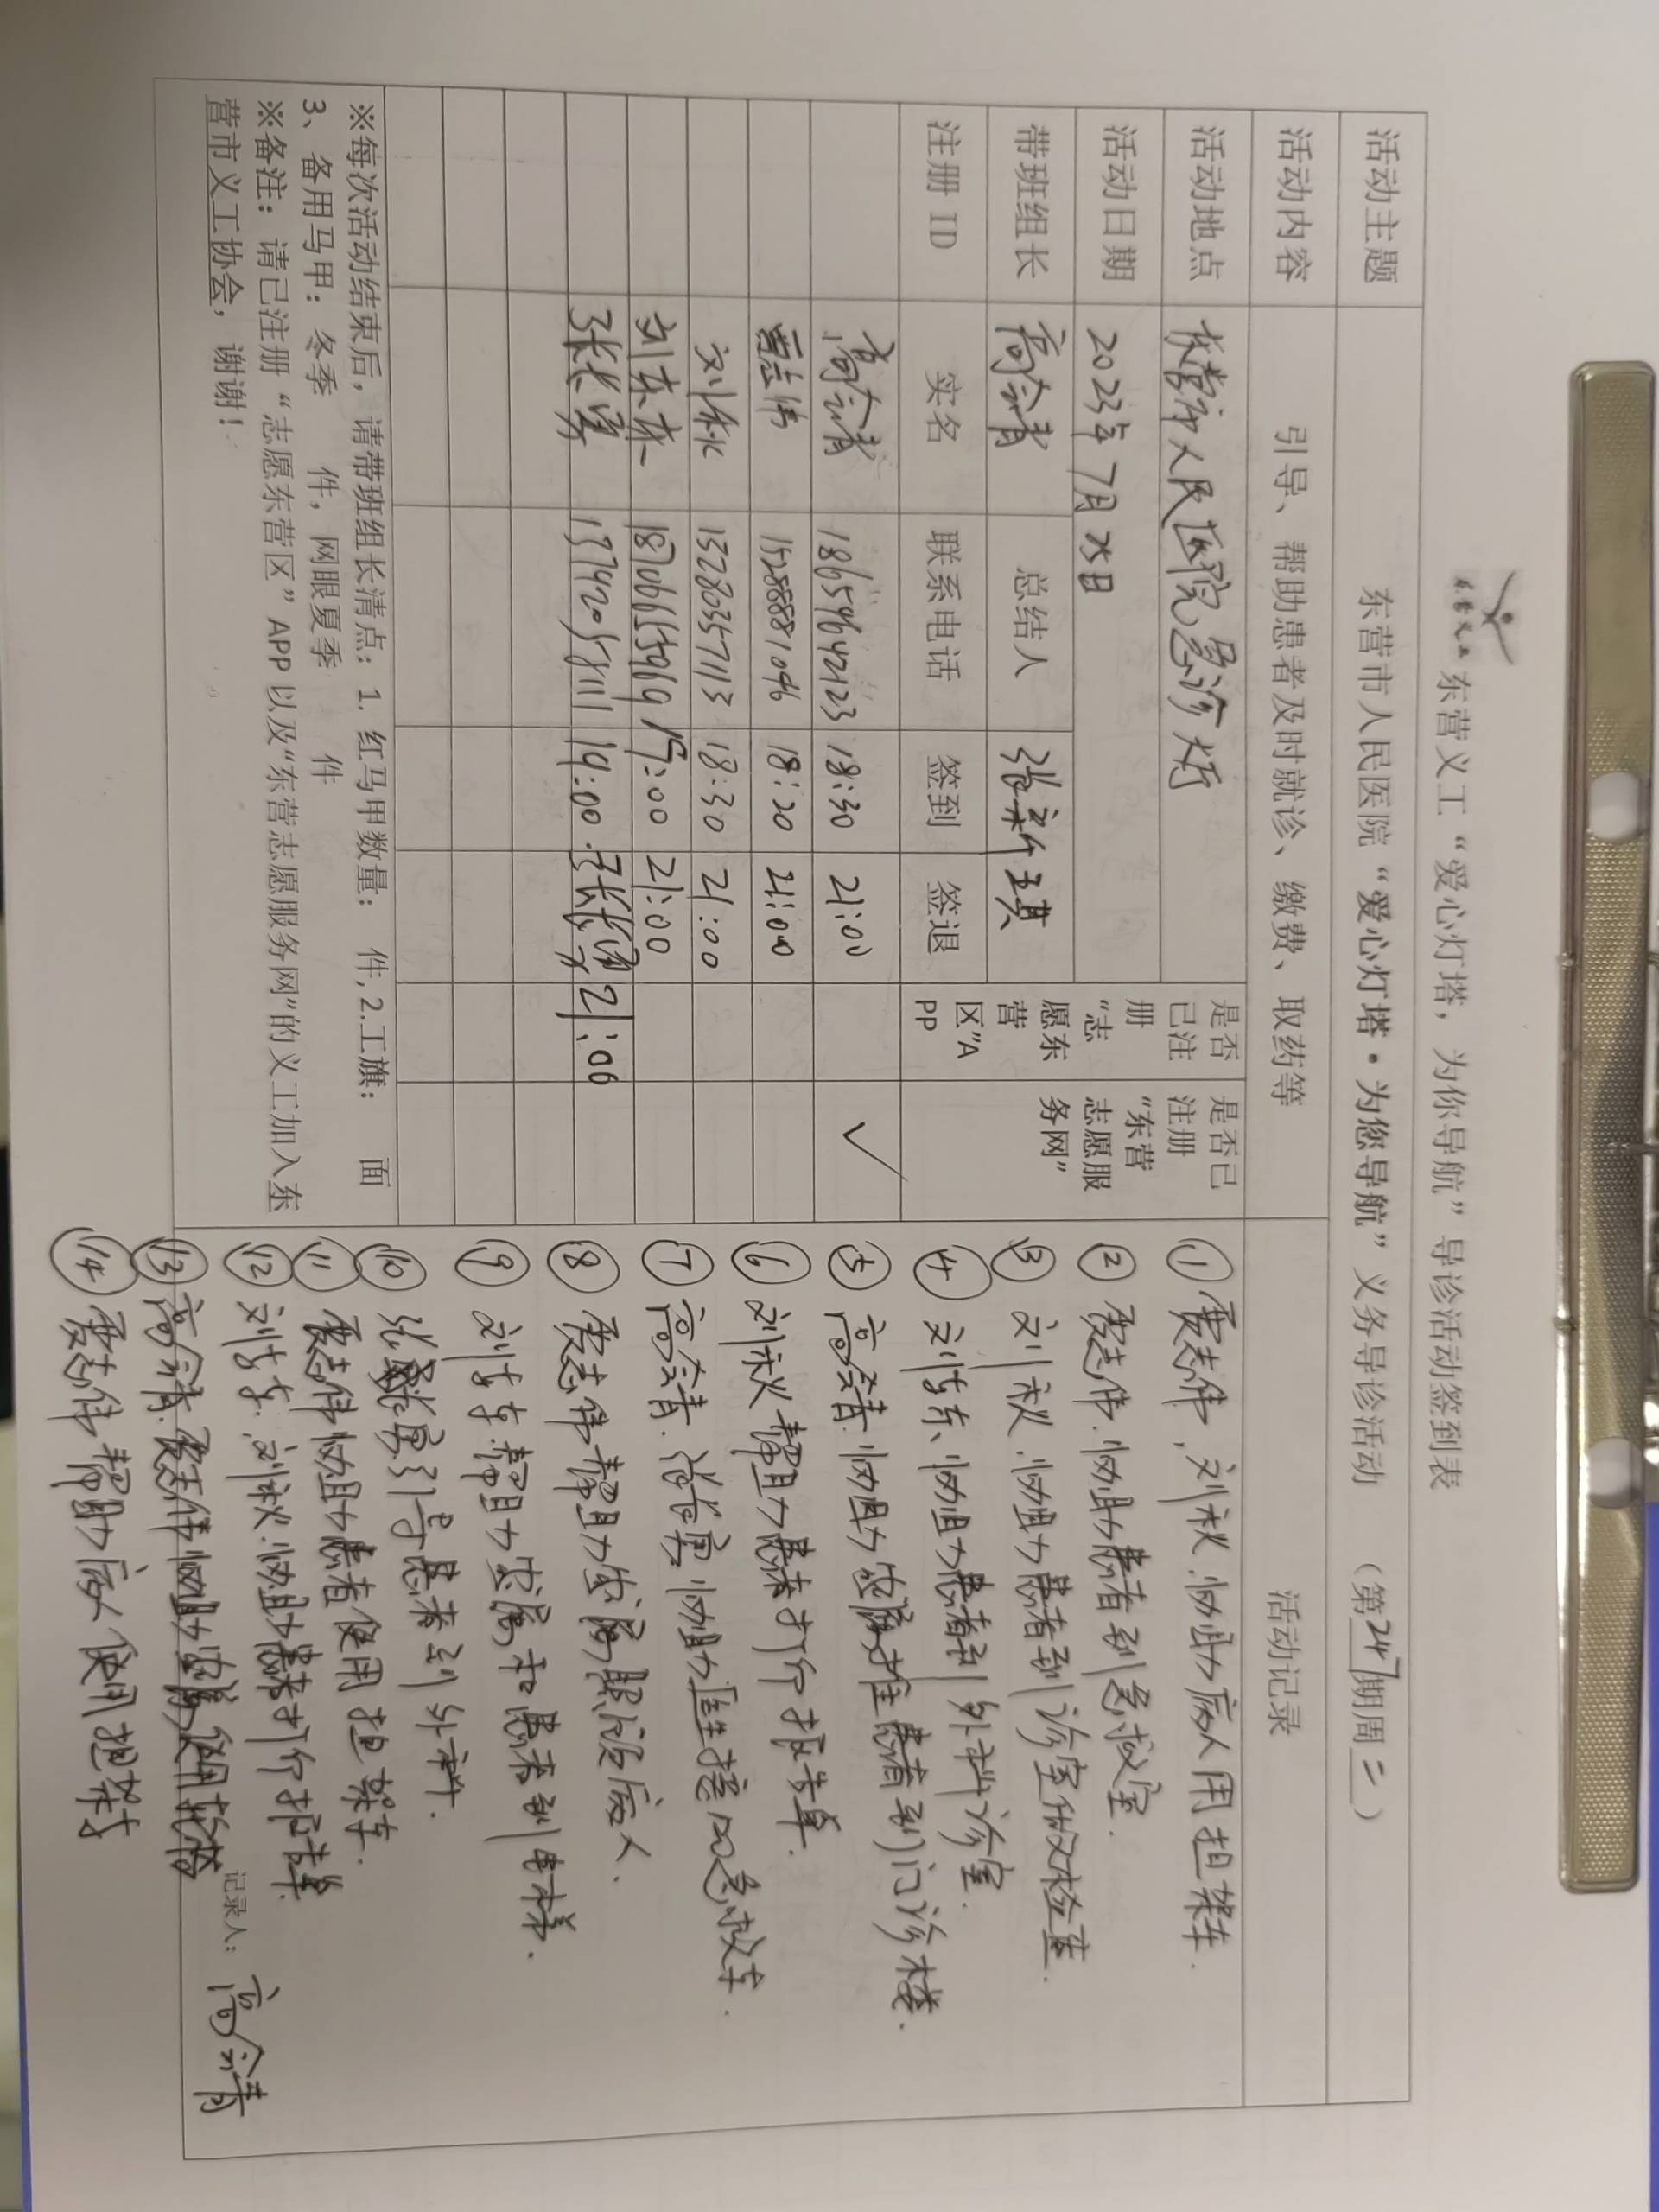 东营义工
东营义工“爱心灯塔，为你导航”导诊活动签到表
活动主题 东营市人民医院“爱心灯塔·为您导航”义务导诊活动 （第247期周二）
活动内容 引导、帮助患者及时就诊、缴费、取药等 活动记录
活动地点 东营市人民医院急诊大厅
活动日期 2023年7月25日
带班组长 高会青 总结人 张新琪
是否已注册“志愿东营区”APP
是否已注册“东营志愿服务网”
注册 ID 实名 联系电话 签到 签退
高会青 18659642123 18:30 21:00 ✓
贾志伟 15288881096 18:20 21:00
刘秋 15280357113 18:30 21:00
刘东东 18706665969 19:00 21:00
张长勇 19:00 张长勇 21:00
①贾志伟、刘秋.协助病人用担架车.
②贾志伟.协助患者到急救室.
③刘秋.协助患者到诊室做检查.
④刘东东、协助患者到外科诊室.
⑤高会青.协助家属推患者到门诊楼.
⑥刘秋帮助患者打印报告单.
⑦高会青.张长勇协助医生接120急救车.
⑧贾志伟帮助家属照顾病人.
⑨刘东东.帮助家属和患者到电梯.
⑩张长勇引导患者到外科.
⑪贾志伟协助患者使用担架车.
⑫刘东东.刘秋.协助患者打印报告单.
⑬高会青.贾志伟协助家属使用轮椅
⑭贾志伟帮助病人使用担架车
记录人： 高会青
※每次活动结束后，请带班组长清点：1. 红马甲数量： 件, 2.工旗： 面
3、备用马甲：冬季 件，网眼夏季 件
※备注：请已注册“志愿东营区”APP 以及“东营志愿服务网”的义工加入东
营市义工协会，谢谢！